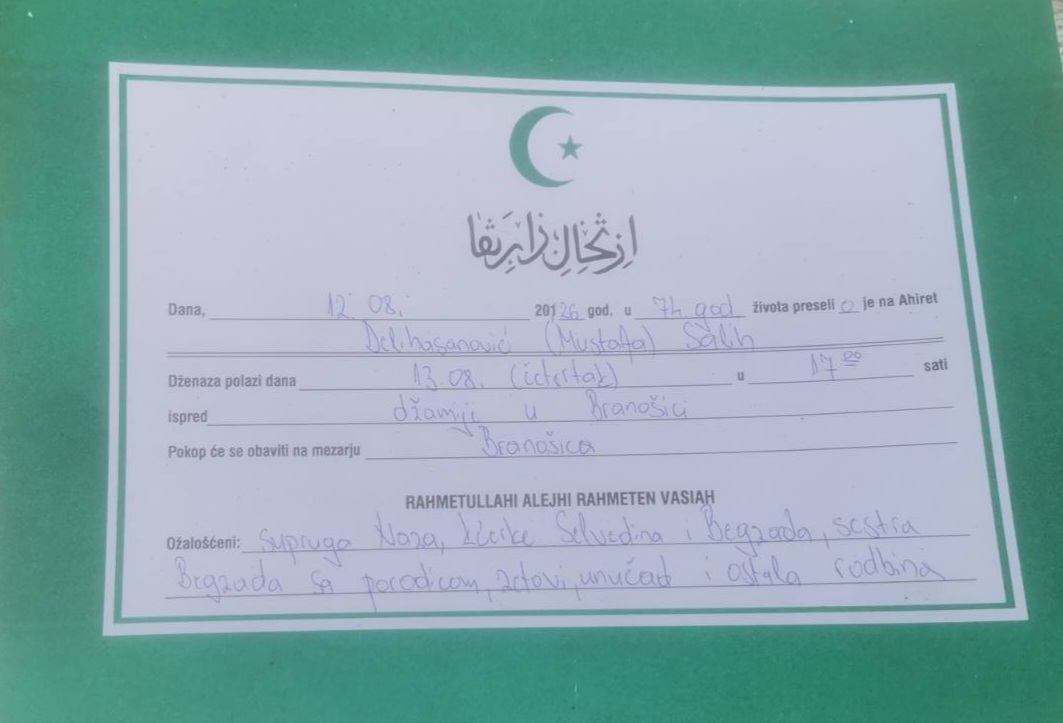 ارتحال دار بقا
Dana, 12. 08. 20126 god. u 74. god života preseli o je na Ahiret
Delihasanović (Mustafa) Salih
Dženaza polazi dana 13.08. (četvrtak) u 17 00 sati
ispred džamiji u Branošici
Pokop će se obaviti na mezarju Branošica
RAHMETULLAHI ALEJHI RAHMETEN VASIAH
Ožalošćeni: Supruga kćerke Selvedina i Begzada, sestra
Begzada sa porodicom, zetovi, unučad i ostala rodbina